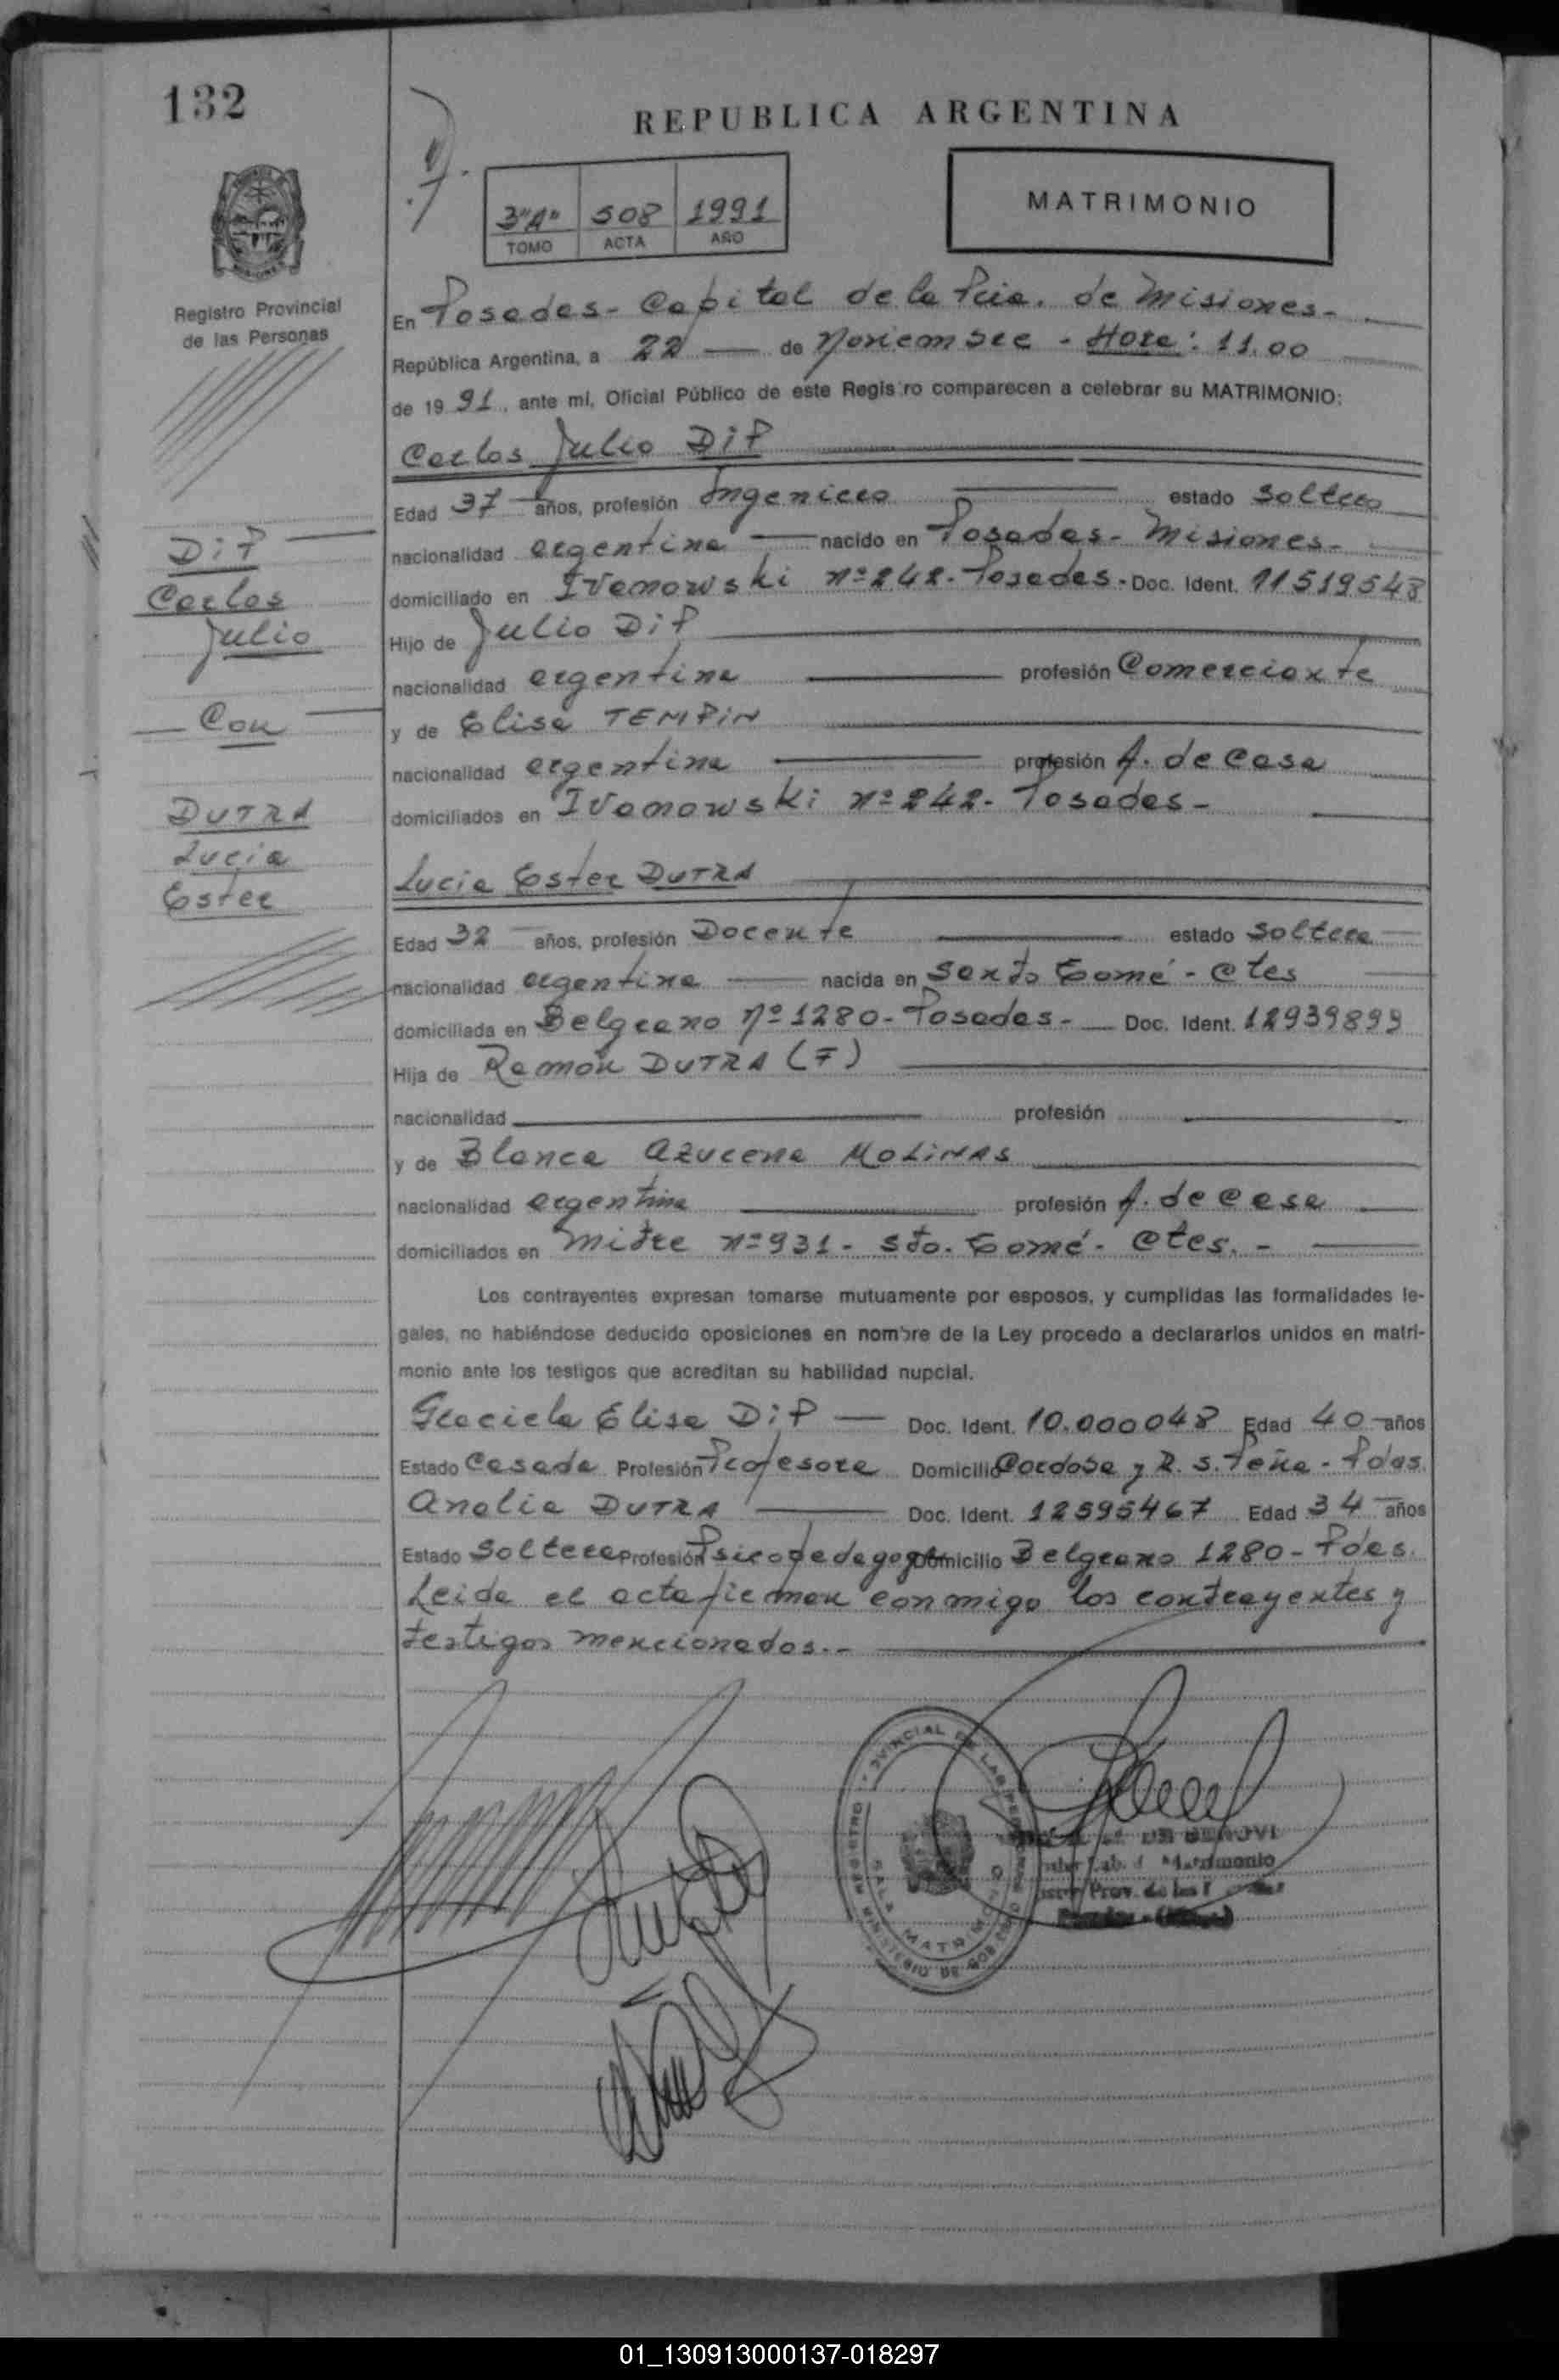 132
REPUBLICA ARGENTINA
3"A" 508 1991
TOMO ACTA AÑO
MATRIMONIO
Registro Provincial
de las Personas
En Posadas- Capital de la Pcia. de Misiones-
República Argentina, a 22 de Noviembre - Hora: 11.00
de 1991, ante mí, Oficial Público de este Registro comparecen a celebrar su MATRIMONIO:
Carlos Julio DIP
Edad 37 años, profesión Ingeniero estado Soltero
nacionalidad argentina nacido en Posadas- Misiones-
domiciliado en Ivanowski nº 242- Posadas- Doc. Ident. 11519548
Hijo de Julio DIP
nacionalidad argentina profesión Comerciante
y de Elisa TEMPIN
nacionalidad argentina profesión A. de Casa
domiciliados en Ivanowski nº 242- Posadas-
Lucia Ester DUTRA
Edad 32 años, profesión Docente estado Soltera
nacionalidad argentina nacida en Santo Tomé - Ctes
domiciliada en Belgrano Nº 1280- Posadas- Doc. Ident. 12939899
Hija de Ramón DUTRA (F)
nacionalidad profesión
y de Blanca Azucena MOLINAS
nacionalidad argentina profesión A. de Casa
domiciliados en Mitre nº 931- Sto. Tomé- Ctes. -
Los contrayentes expresan tomarse mutuamente por esposos, y cumplidas las formalidades le-
gales, no habiéndose deducido oposiciones en nombre de la Ley procedo a declararlos unidos en matri-
monio ante los testigos que acreditan su habilidad nupcial.
Graciela Elisa DIP Doc. Ident. 10.000048 Edad 40 años
Estado Casada Profesión Profesora Domicilio Cordoba y R. S. Peña - Pdas.
Analia DUTRA Doc. Ident. 12595467 Edad 34 años
Estado Soltera Profesión Psicopedagoga Domicilio Belgrano 1280- Pdas.
Leida el acta firman conmigo los contrayentes y
testigos mencionados.-
DIP
Carlos
Julio
Con
DUTRA
Lucia
Ester
REGISTRO PROVINCIAL DE LAS PERSONAS
SALA MATRIMONIO
MINISTERIO DE GOBIERNO
01_130913000137-018297